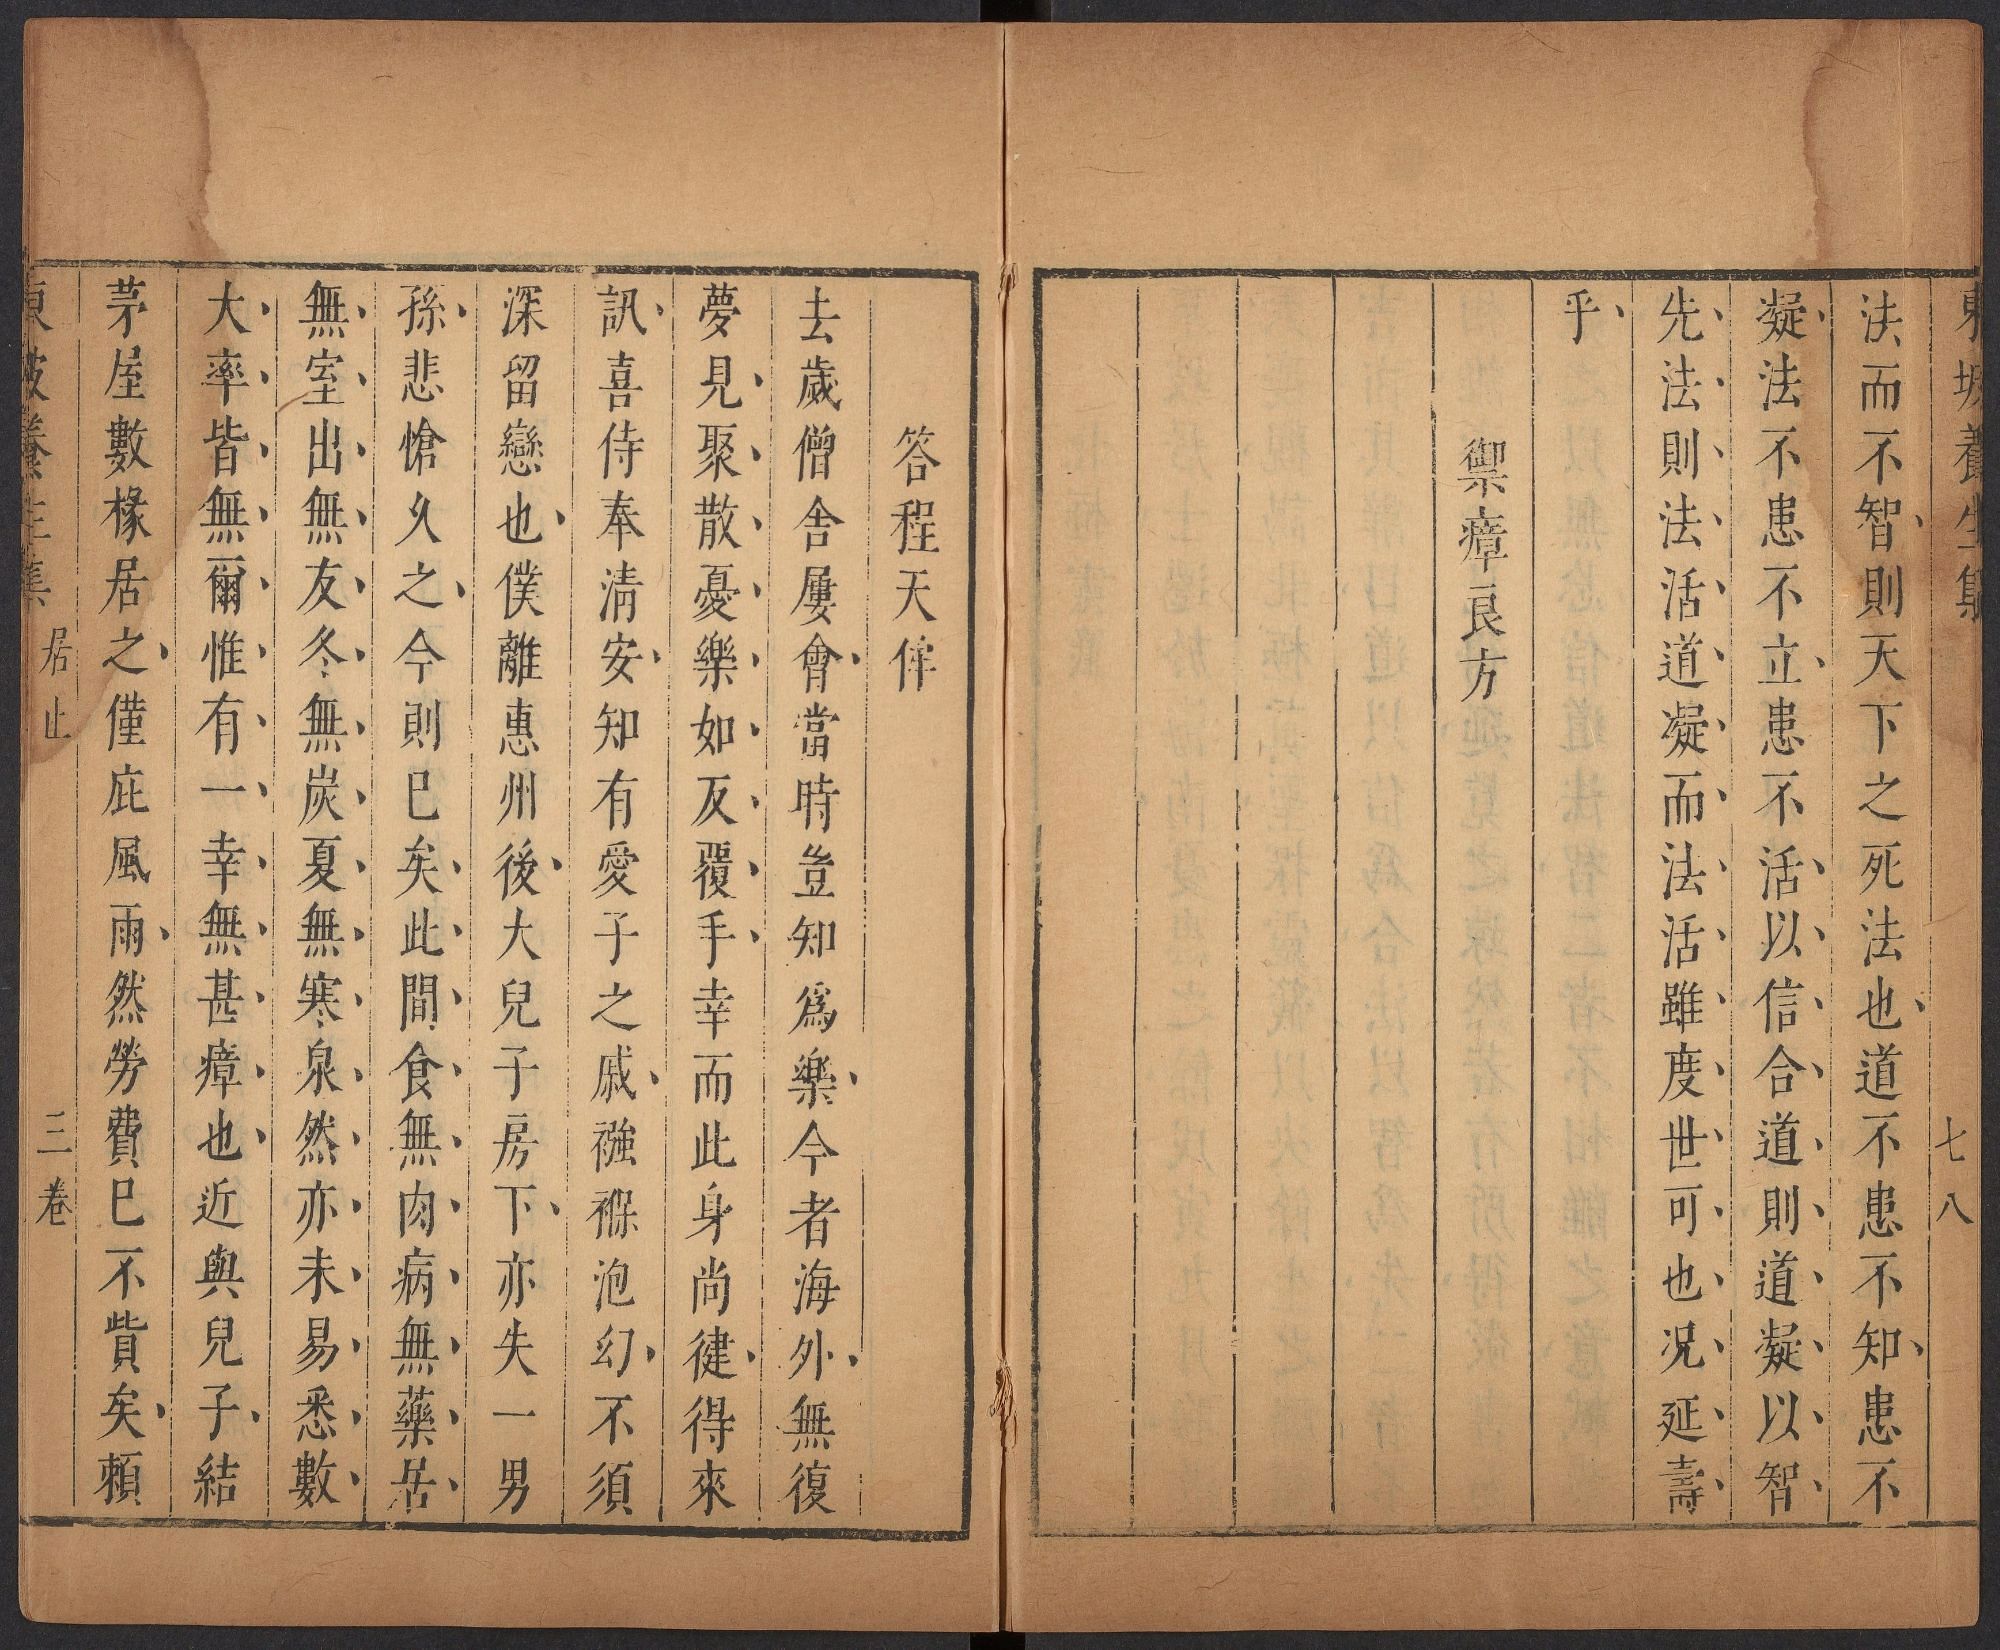 東坡養生集
七八
法而不智則天下之死法也道不患不知患不
凝法不患不立患不活以信合道則道凝以智
先法則法活道凝而法活雖度世可也況延壽
乎
禦瘴良方
答程天侔
去歲僧舍屢會當時豈知為樂今者海外無復
夢見聚散憂樂如反覆手幸而此身尚健得來
訊喜侍奉清安知有愛子之戚襁褓泡幻不須
深留戀也僕離惠州後大兒子房下亦失一男
孫悲愴久之今則已矣此間食無肉病無藥居
無室出無友冬無炭夏無寒泉然亦未易悉數
大率皆無爾惟有一幸無甚瘴也近與兒子結
茅屋數椽居之僅庇風雨然勞費已不貲矣賴
東坡養生集 居止 三卷